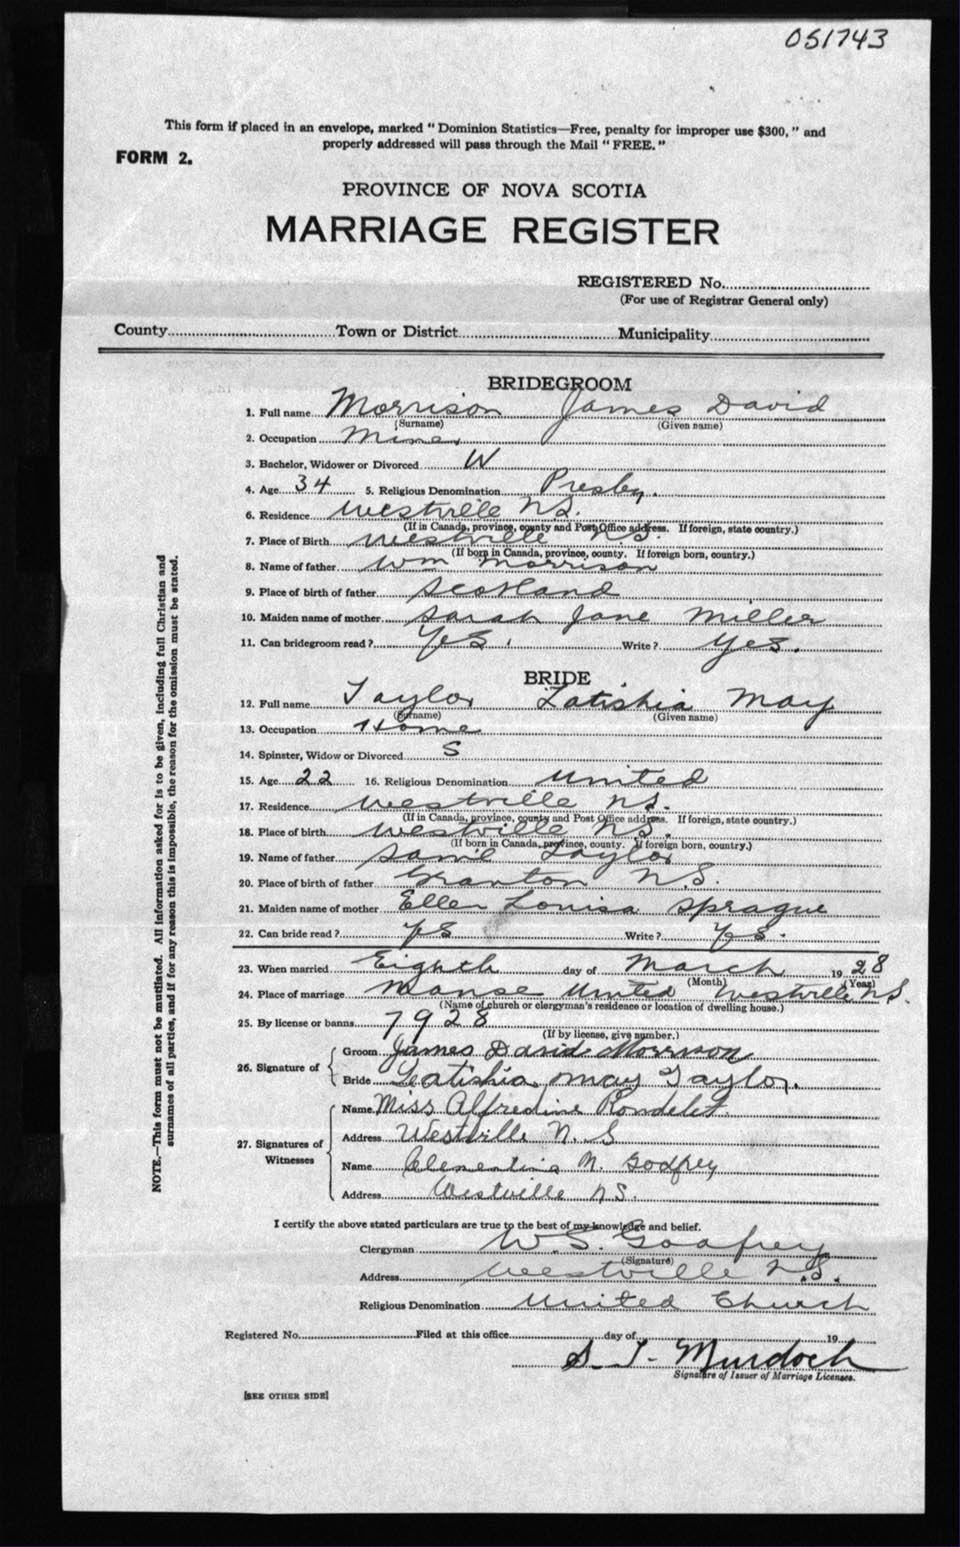 051743
This form if placed in an envelope, marked "Dominion Statistics—Free, penalty for improper use $300," and
properly addressed will pass through the Mail "FREE."
FORM 2.
PROVINCE OF NOVA SCOTIA
MARRIAGE REGISTER
REGISTERED No.
(For use of Registrar General only)
County Town or District Municipality
BRIDEGROOM
1. Full name Morrison James David
(Surname) (Given name)
2. Occupation Miner
3. Bachelor, Widower or Divorced W
4. Age 34 5. Religious Denomination Presby.
6. Residence Westville N.S.
(If in Canada, province, county and Post Office address. If foreign, state country.)
7. Place of Birth Westville N.S.
(If born in Canada, province, county. If foreign born, country.)
8. Name of father Wm Morrison
9. Place of birth of father Scotland
10. Maiden name of mother Sarah Jane Miller
11. Can bridegroom read? Yes. Write? Yes.
BRIDE
12. Full name Taylor Latishia May
(Surname) (Given name)
13. Occupation Home
14. Spinster, Widow or Divorced S
15. Age 22 16. Religious Denomination United
17. Residence Westville N.S.
(If in Canada, province, county and Post Office address. If foreign, state country.)
18. Place of birth Westville N.S.
(If born in Canada, province, county. If foreign born, country.)
19. Name of father Saml Taylor
20. Place of birth of father Granton N.S.
21. Maiden name of mother Ellen Louisa Sprague
22. Can bride read? Yes Write? Yes.
23. When married Eighth day of March 1928
(Month) (Year)
24. Place of marriage Manse United Westville N.S.
(Name of church or clergyman's residence or location of dwelling house.)
25. By license or banns 7928
(If by license, give number.)
26. Signature of Groom James David Morrison
Bride Latishia May Taylor.
27. Signatures of Witnesses Name Miss Alfredine Rondelet
Address Westville N.S
Name Clementina M. Godfrey
Address Westville N.S.
I certify the above stated particulars are true to the best of my knowledge and belief.
Clergyman W.S. Godfrey
(Signature)
Address Westville N.S.
Religious Denomination United Church
Registered No. Filed at this office day of 19
S. T. Murdoch
Signature of Issuer of Marriage Licenses.
[SEE OTHER SIDE]
NOTE.—This form must not be mutilated. All information asked for is to be given, including full Christian and
surnames of all parties, and if for any reason this is impossible, the reason for the omission must be stated.